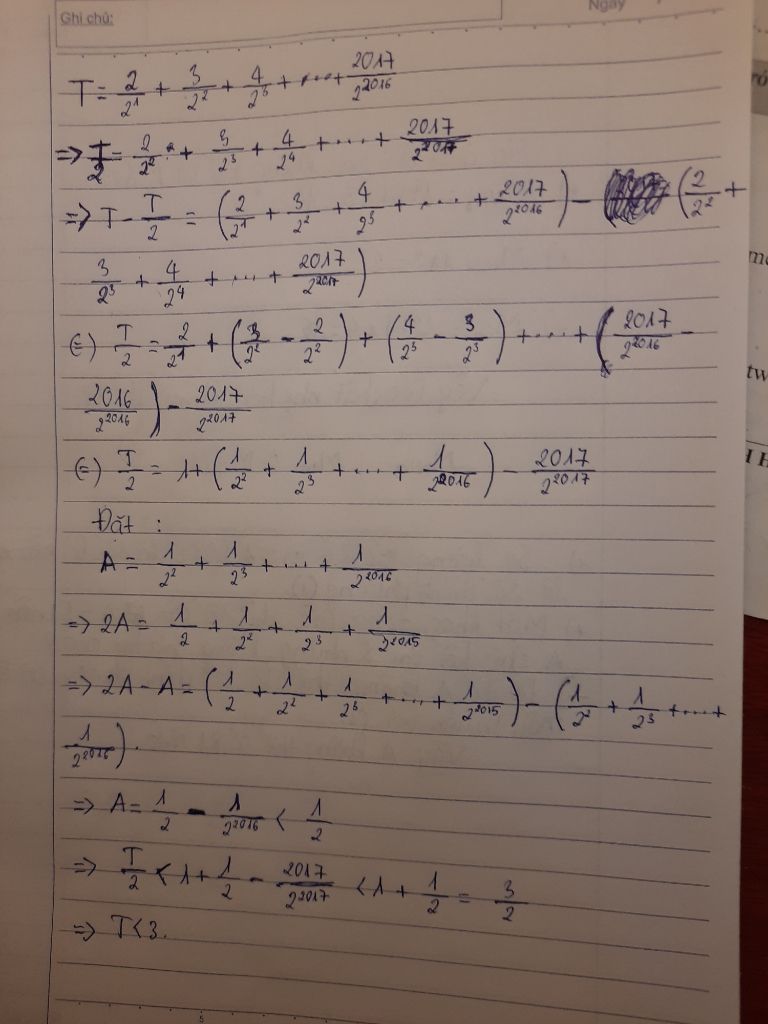 Ghi chú:
Ngày
T = 2/2^1 + 3/2^2 + 4/2^3 + .... + 2017/2^2016
=> T/2 = 2/2^2 + 3/2^3 + 4/2^4 + .... + 2017/2^2017
=> T - T/2 = (2/2^1 + 3/2^2 + 4/2^3 + .... + 2017/2^2016) - (2/2^2 +
3/2^3 + 4/2^4 + ... + 2017/2^2017)
(=) T/2 = 2/2^1 + (3/2^2 - 2/2^2) + (4/2^3 - 3/2^3) + .... + (2017/2^2016 -
2016/2^2016) - 2017/2^2017
(=) T/2 = 1 + (1/2^2 + 1/2^3 + ... + 1/2^2016) - 2017/2^2017
Đặt :
A = 1/2^2 + 1/2^3 + ... + 1/2^2016
=> 2A = 1/2 + 1/2^2 + 1/2^3 + 1/2^2015
=> 2A - A = (1/2 + 1/2^2 + 1/2^3 + ... + 1/2^2015) - (1/2^2 + 1/2^3 + .... +
1/2^2016).
=> A = 1/2 - 1/2^2016 < 1/2
=> T/2 < 1 + 1/2 - 2017/2^2017 < 1 + 1/2 = 3/2
=> T < 3.